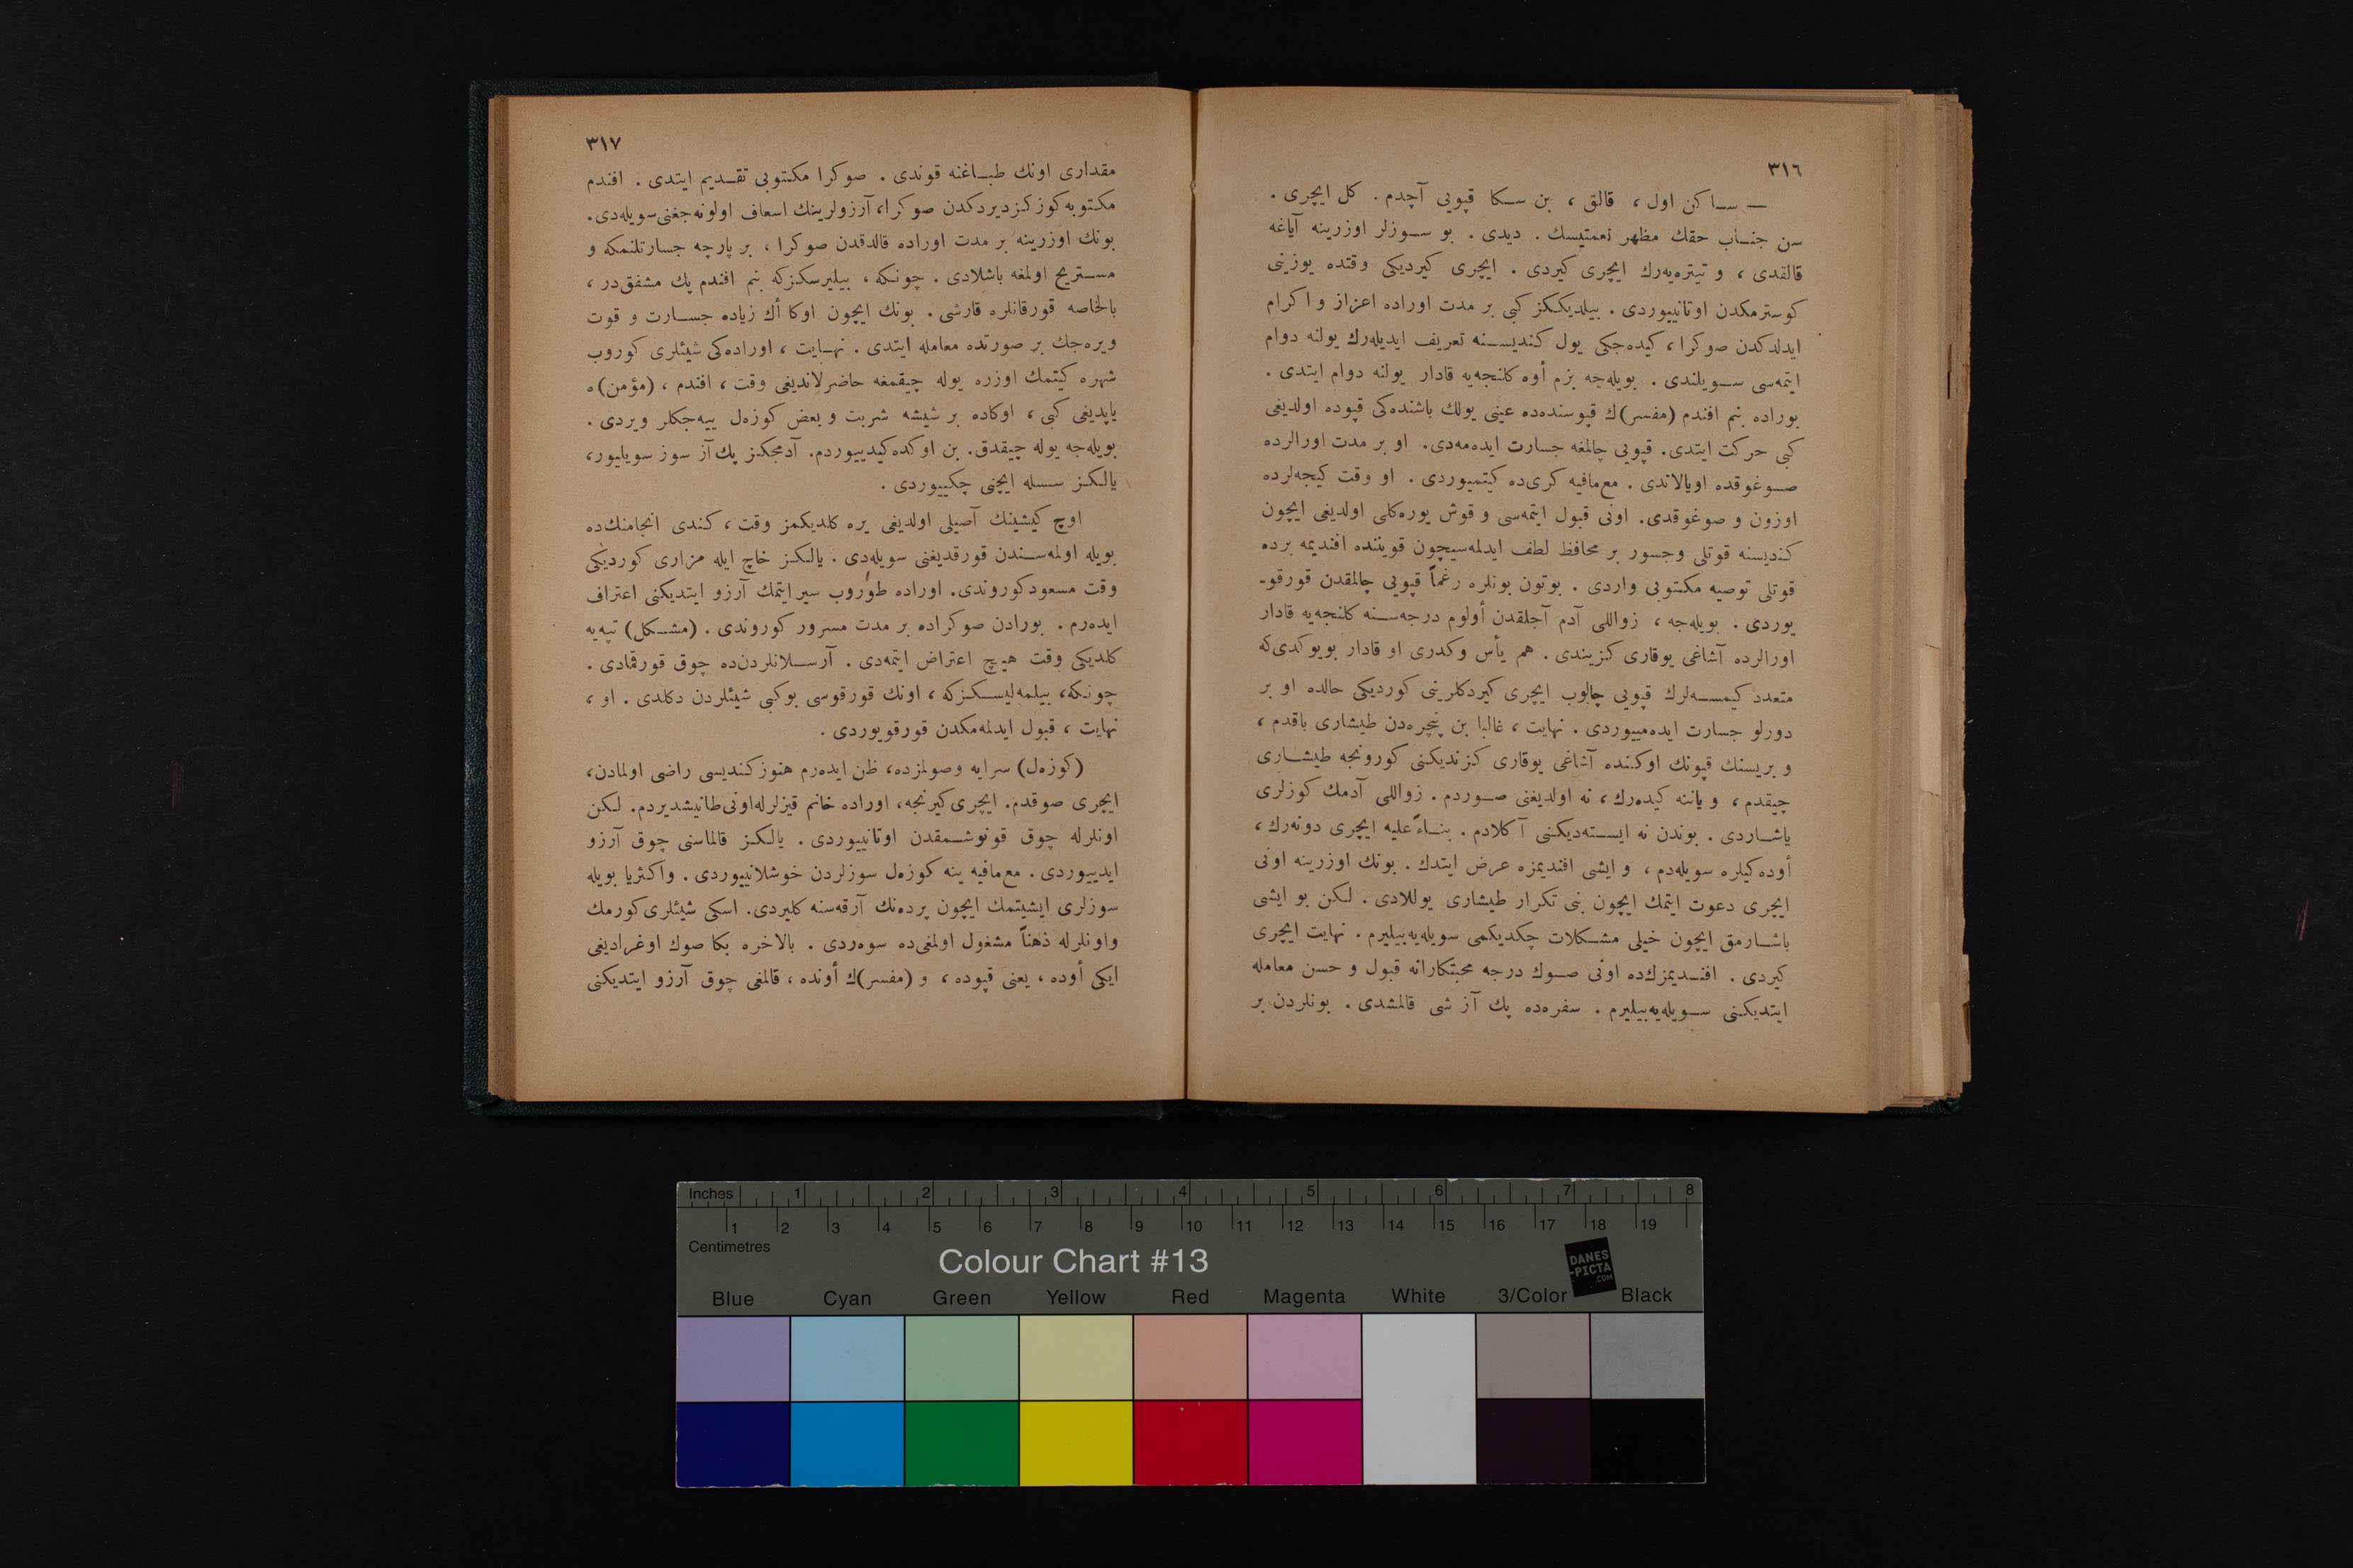 ٣١٦
— ساكن اول ، قالق ، بن سكا قپويی آچدم . كل ایچری .
سن جناب حقك مظهر نعمتیسك . دیدی . بو سوزلر اوزرینه آیاغه
قالقدی ، و تیتره‌یه‌رك ایچری كیردی . ایچری كیردیكی وقتده یوزینی
كوسترمكدن اوتانییوردی . بیلدیككز كبی بر مدت اوراده اعزاز و اكرام
ایدلدكدن صوكرا ، كیده‌جكی یول كندیسنه تعریف ایدیله‌رك یولنه دوام
ایتمه‌سی سویلندی . بویله‌جه بزم أوه كلنجه‌یه قادار یولنه دوام ایتدی .
بوراده بنم افندم (مفسر)ك قپوسنده‌ده عینی یولك باشنده‌كی قپوده اولدیغی
كبی حركت ایتدی . قپویی چالمغه جسارت ایده‌مه‌دی . او بر مدت اورالرده
صوغوقده اویالاندی . مع‌مافیه كری‌ده كیتمیوردی . او وقت كیجه‌لرده
اوزون و صوغوقدی . اونی قبول ایتمه‌سی و قوش یوره‌كلی اولدیغی ایچون
كندیسنه قوتلی وجسور بر محافظ لطف ایدلمه‌سیچون قویننده افندیمه برده
قوتلی توصیه مكتوبی واردی . بوتون بونلره رغماً قپویی چالمقدن قورقو-
یوردی . بویله‌جه ، زواللی آدم آجلقدن أولوم درجه‌سنه كلنجه‌یه قادار
اورالرده آشاغی یوقاری كزیندی . هم یأس وكدری او قادار بویوكدی‌كه
متعدد كیمسه‌لرك قپویی چالوب ایچری كیردكلرینی كوردیكی حالده او بر
دورلو جسارت ایده‌مییوردی . نهایت ، غالبا بن پنچره‌دن طیشاری باقدم ،
و بریسنك قپونك اوكنده آشاغی یوقاری كزندیكنی كورونجه طیشاری
چیقدم ، و یاننه كیده‌رك ، نه اولدیغنی صوردم . زواللی آدمك كوزلری
یاشاردی . بوندن نه ایسته‌دیكنی آكلادم . بناءً علیه ایچری دونه‌رك ،
أوده‌كیلره سویله‌دم ، و ایشی افندیمزه عرض ایتدك . بونك اوزرینه اونی
ایچری دعوت ایتمك ایچون بنی تكرار طیشاری یوللادی . لكن بو ایشی
باشارمق ایچون خیلی مشكلات چكدیكمی سویله‌یه‌بیلیرم . نهایت ایچری
كیردی . افندیمزك‌ده اونی صوك درجه محبتكارانه قبول و حسن معامله
ایتدیكنی سویله‌یه‌بیلیرم . سفره‌ده پك آز شی قالمشدی . بونلردن بر
٣١٧
مقداری اونك طباغنه قوندی . صوكرا مكتوبی تقدیم ایتدی . افندم
مكتوبه كوز كزدیردكدن صوكرا، آرزولرینك اسعاف اولونه‌جغنی سویله‌دی .
بونك اوزرینه بر مدت اوراده قالدقدن صوكرا ، بر پارچه جسارتلنمكه و
مستریح اولمغه باشلادی . چونكه ، بیلیرسكزكه بنم افندم پك مشفق‌در ،
بالخاصه قورقانلره قارشی . بونك ایچون اوكا أك زیاده جسارت و قوت
ویره‌جك بر صورتده معامله ایتدی . نهایت ، اوراده‌كی شیئلری كوروب
شهره كیتمك اوزره یوله چیقمغه حاضرلاندیغی وقت ، افندم ، (مؤمن)ه
یاپدیغی كبی ، اوكاده بر شیشه شربت و بعض كوزەل ییه‌جكلر ویردی .
بویله‌جه یوله چیقدق . بن اوكده كیدییوردم . آدمجكز پك آز سوز سویلیور،
یالكز سسله ایچنی چكییوردی .
اوچ كیشینك آصیلی اولدیغی یره كلدیكمز وقت ، كندی انجامنك‌ده
بویله اولمه‌سندن قورقدیغنی سویله‌دی . یالكز خاچ ایله مزاری كوردیكی
وقت مسعود كوروندی . اوراده طوروب سیر ایتمك آرزو ایتدیكنی اعتراف
ایده‌رم . بورادن صوكراده بر مدت مسرور كوروندی . (مشكل) تپه‌یه
كلدیكی وقت هیچ اعتراض ایتمه‌دی . آرسلانلردن‌ده چوق قورقمادی .
چونكه، بیلمه‌لیسكزكه ، اونك قورقوسی بوكبی شیئلردن دكلدی . او ،
نهایت ، قبول ایدلمه‌مكدن قورقویوردی .
(كوزەل) سرایه وصولمزده، ظن ایده‌رم هنوز كندیسی راضی اولمادن،
ایچری صوقدم . ایچری كیرنجه، اوراده خانم قیزلرله اونی طانیشدیردم . لكن
اونلرله چوق قونوشمقدن اوتانییوردی . یالكز قالماسنی چوق آرزو
ایدییوردی . مع‌مافیه ینه كوزەل سوزلردن خوشلانییوردی . واكثریا بویله
سوزلری ایشیتمك ایچون پرده‌نك آرقه‌سنه كلیردی . اسكی شیئلری كورمك
واونلرله ذهناً مشغول اولمغی‌ده سوه‌ردی . بالاخره بكا صوك اوغرادیغی
ایكی أوده ، یعنی قپوده ، و (مفسر)ك أونده ، قالمغی چوق آرزو ایتدیكنی
Inches 1 2 3 4 5 6 7 8
1 2 3 4 5 6 7 8 9 10 11 12 13 14 15 16 17 18 19
Centimetres
Colour Chart #13
DANES
-PICTA
.COM
Blue Cyan Green Yellow Red Magenta White 3/Color Black